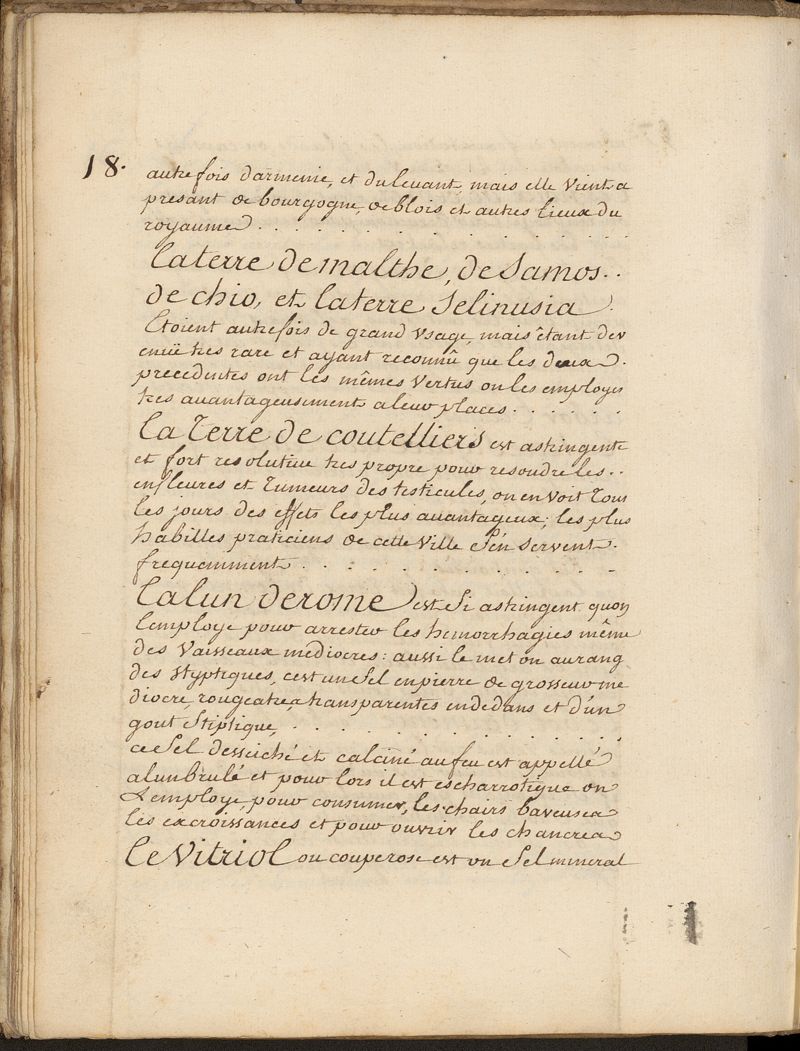 18.
autrefois darmenie, et du levant, mais elle vient a
presant de bourgogne, de blois et autres lieux du
royaume . . . . . . . . . . . . . .
la terre de malthe, de Samos . .
de chio, et la terre Selinusia .
Etoient autrefois de grand usage, mais êtant dev
enuë tres rare et ayant reconnû que les deux .
precedentes ont les mêmes vertus on les employe
tres avantageusement a leur places . . . . . .
la Terre de coutelliers est astringente
et fort resolutive tres propre pour resoudre les . .
enfleures et Tumeurs des testicules, on en voit Tous
les jours des effets les plus avantageux ; les plus
habilles praticiens de cette Ville s'en servent .
frequemment . . . . . . . . . . .
l'alun de rome est si astringent quon
l'employe pour arrester les hemorrhagies même
des Vaisseaux mediocres : aussi le met on au rang
des styptiques, c'est un Sel en pierre de grosseur me
diocre, rougeatre, transparentes en dedans et d'un
gout Stiptique, . . . . . . . . . . .
ce Sel desseiché et calciné au feu est appellé
alun brulé et pour lors il est escharrotique on
L'employe, pour consumer, les chairs baveuses
les excroissances et pour ouvrir les chancres
le Vitriol ou couperose est un Sel mineral